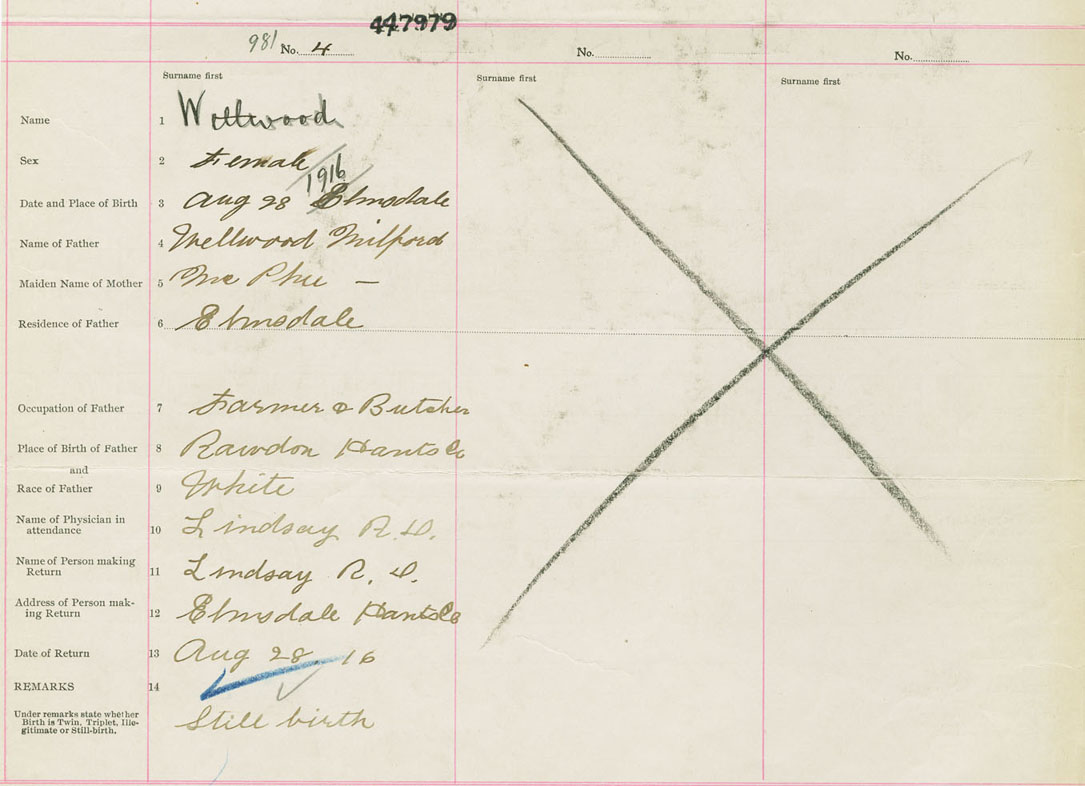 447979
981 No. 4
No.
No.
Surname first
Surname first
Surname first
Name 1 Wellwood
Sex 2 Female
1916
Date and Place of Birth 3 Aug 28 Elmsdale
Name of Father 4 Wellwood Milford
Maiden Name of Mother 5 McPhee —
Residence of Father 6 Elmsdale
Occupation of Father 7 Farmer & Butcher
Place of Birth of Father 8 Rawdon Hants Co
and
Race of Father 9 White
Name of Physician in
attendance 10 Lindsay R. D.
Name of Person making
Return 11 Lindsay R. D.
Address of Person mak-
ing Return 12 Elmsdale Hants Co
Date of Return 13 Aug 28 16
REMARKS 14
Under remarks state whether
Birth is Twin, Triplet, Ille-
gitimate or Still-birth.
Still birth